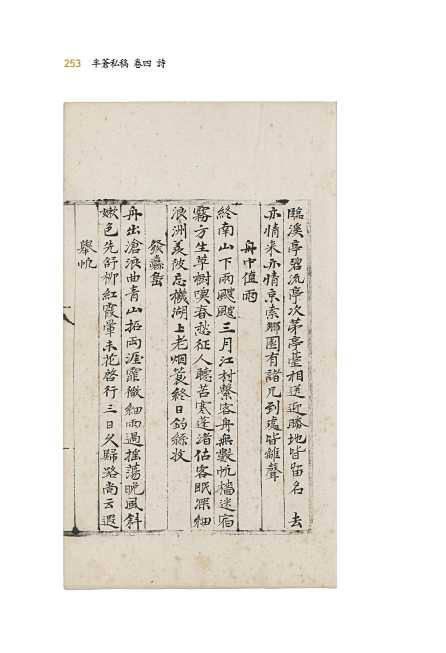 253 半蒼私稿 卷四 詩
臨溪亭碧流亭次第亭臺相送近勝地皆留名 去
亦情来亦情京索鄉園有諸兄到處皆離聲
舟中值雨
終南山下雨颼颼三月江村繫客舟無數帆檣迷宿
霧方生草樹喚春愁征人聽苦寒蓬渚估客眠深細
浪洲羡彼忘機湖上老烟蓑終日釣絲收
發
舟出滄浪曲青山拓兩涯霏微細雨過搖蕩晚風斜
嫩色先舒柳紅霞暈未花啓行三日久歸路尚云遐
舉帆